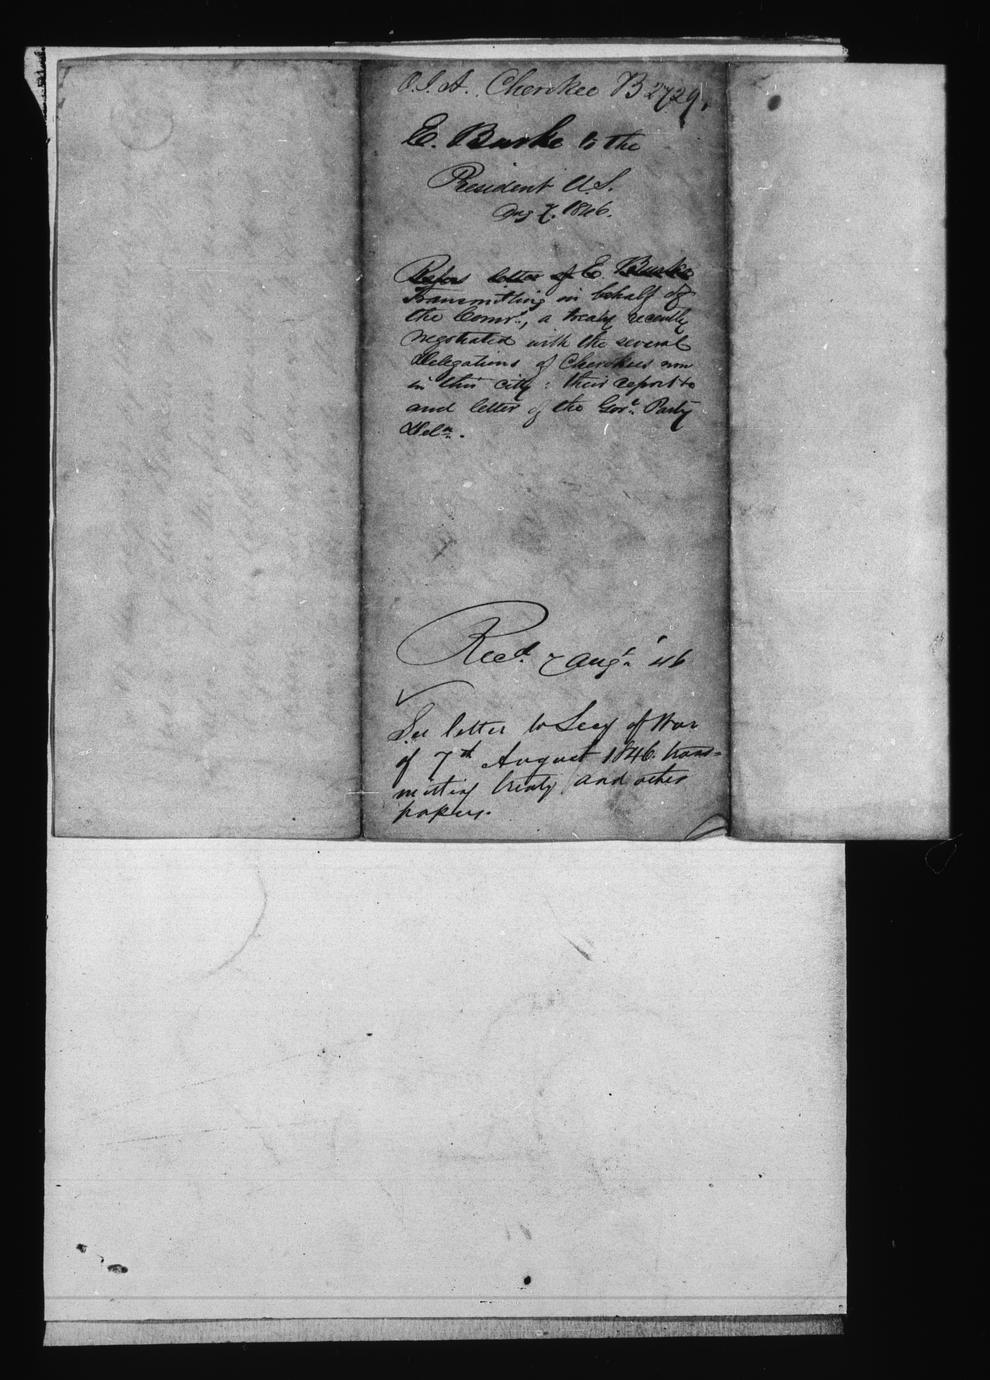 O.I.A. Cherokee B 2729.
E. Burke to the
President U.S.
Aug 7. 1846.
Refers letter of E. Burke
Transmitting in behalf of
the Comrs, a treaty recently
negotiated with the several
Delegations of Cherokees now
in this city: their report &
and letter of the Govt. Party
Deln.
Recd. 7 Augt. '46
See letter to Secy of War
of 7th August 1846 trans=
mitting treaty and other
papers.